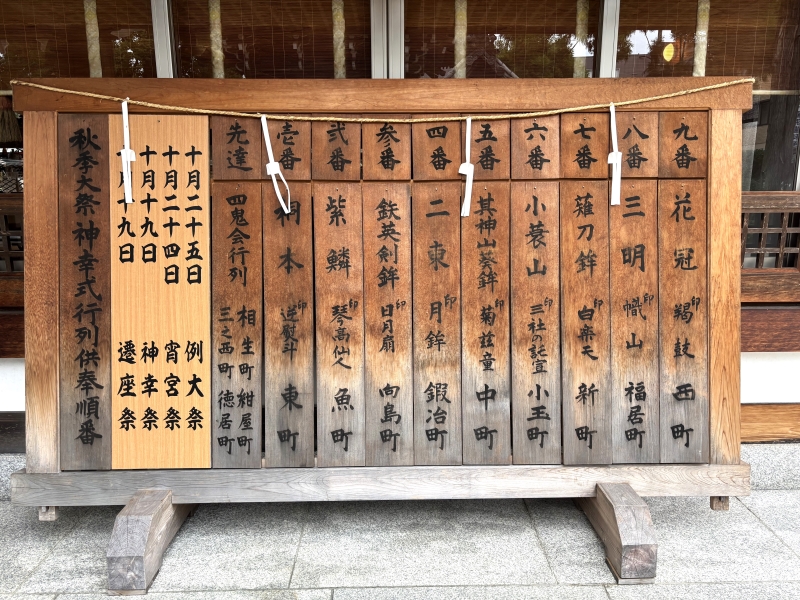 秋季大祭神幸式行列供奉順番
十月十九日 遷座祭
十月十九日 神幸祭
十月二十四日 宵宮祭
十月二十五日 例大祭
先達
四鬼会行列
相生町 紺屋町
三之西町 徳居町
壱番
桐本 印 逆熨斗 東町
弐番
紫鱗 印 琴高仙人 魚町
参番
鉄英剣鉾 印 日月扇 向島町
四番
二東 印 月鉾 鍛冶町
五番
其神山葵鉾 印 菊慈童 中町
六番
小蓑山 印 三社の託宣 小玉町
七番
薙刀鉾 印 白楽天 新町
八番
三明 印 幟山 福居町
九番
花冠 印 羯鼓 西町